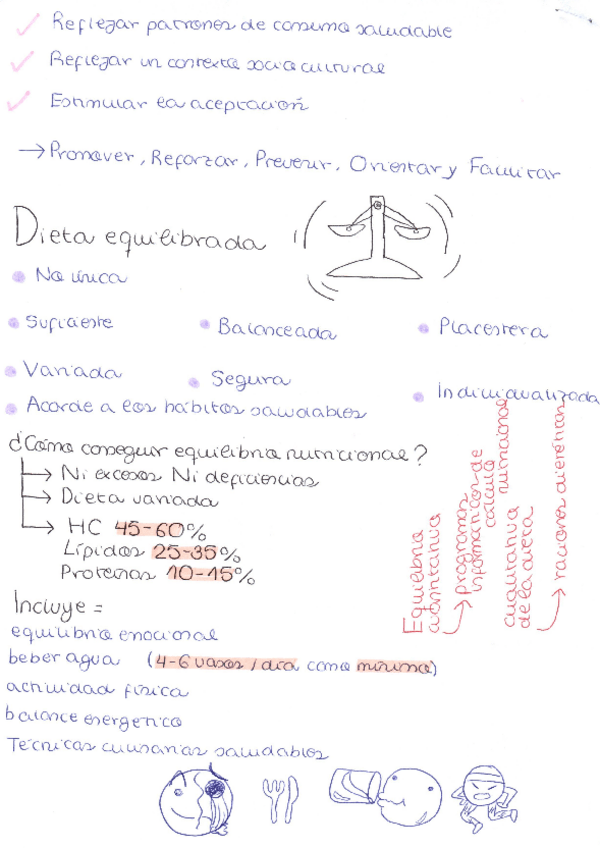 Reflejar patrones de consumo saludable
Reflejar un contexto socio cultural
Estimular la aceptación
→ Promover, Reforzar, Prevenir, Orientar y Facilitar
Dieta equilibrada
No única
Suficiente
Balanceada
Placentera
Variada
Segura
Individualizada
Acorde a los hábitos saludables
¿Cómo conseguir equilibrio nutricional?
Ni excesos Ni deficiencias
Dieta variada
HC 45-60%
Lípidos 25-35%
Proteínas 10-15%
Equilibrio
cuantitativa
→ programas
informáticos de
cálculo
nutricional
cualitativa
de la dieta
→ raciones diferentes
Incluye =
equilibrio emocional
beber agua (4-6 vasos / día como mínimo)
actividad física
balance energético
Técnicas culinarias saludables